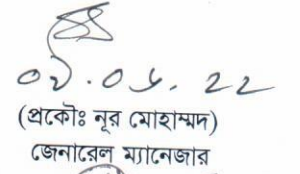 ০৬.০৬.২২
(প্রকৌঃ নূর মোহাম্মদ)
জেনারেল ম্যানেজার